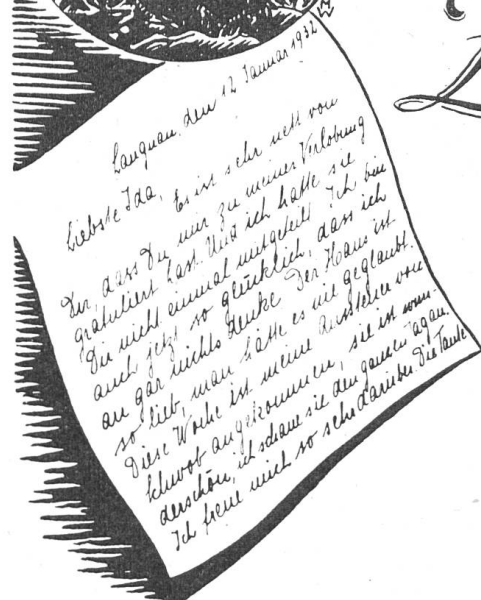 Langnau, den 12 Januar 1932
Liebste Ida, Es ist sehr nett von
Dir, dass Du mir zu meiner Verlobung
gratuliert hast. Und ich hatte sie
Dir nicht einmal mitgeteilt Ich bin
auch jetzt so glücklich, dass ich
an gar nichts denke Der Hans ist
so lieb, man hätte es nie geglaubt.
Diese Woche ist meine Aussteuer von
Schwob angekommen, sie ist wun-
derschön, ich schaue sie den ganzen Tag an.
Ich freue mich so sehr darüber. Die Tante